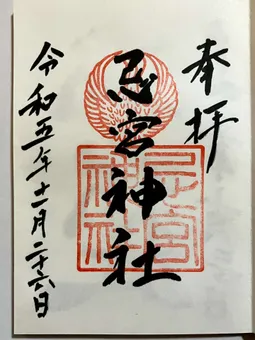 奉拝
忌宮神社
忌宮神社
令和五年十一月二十六日